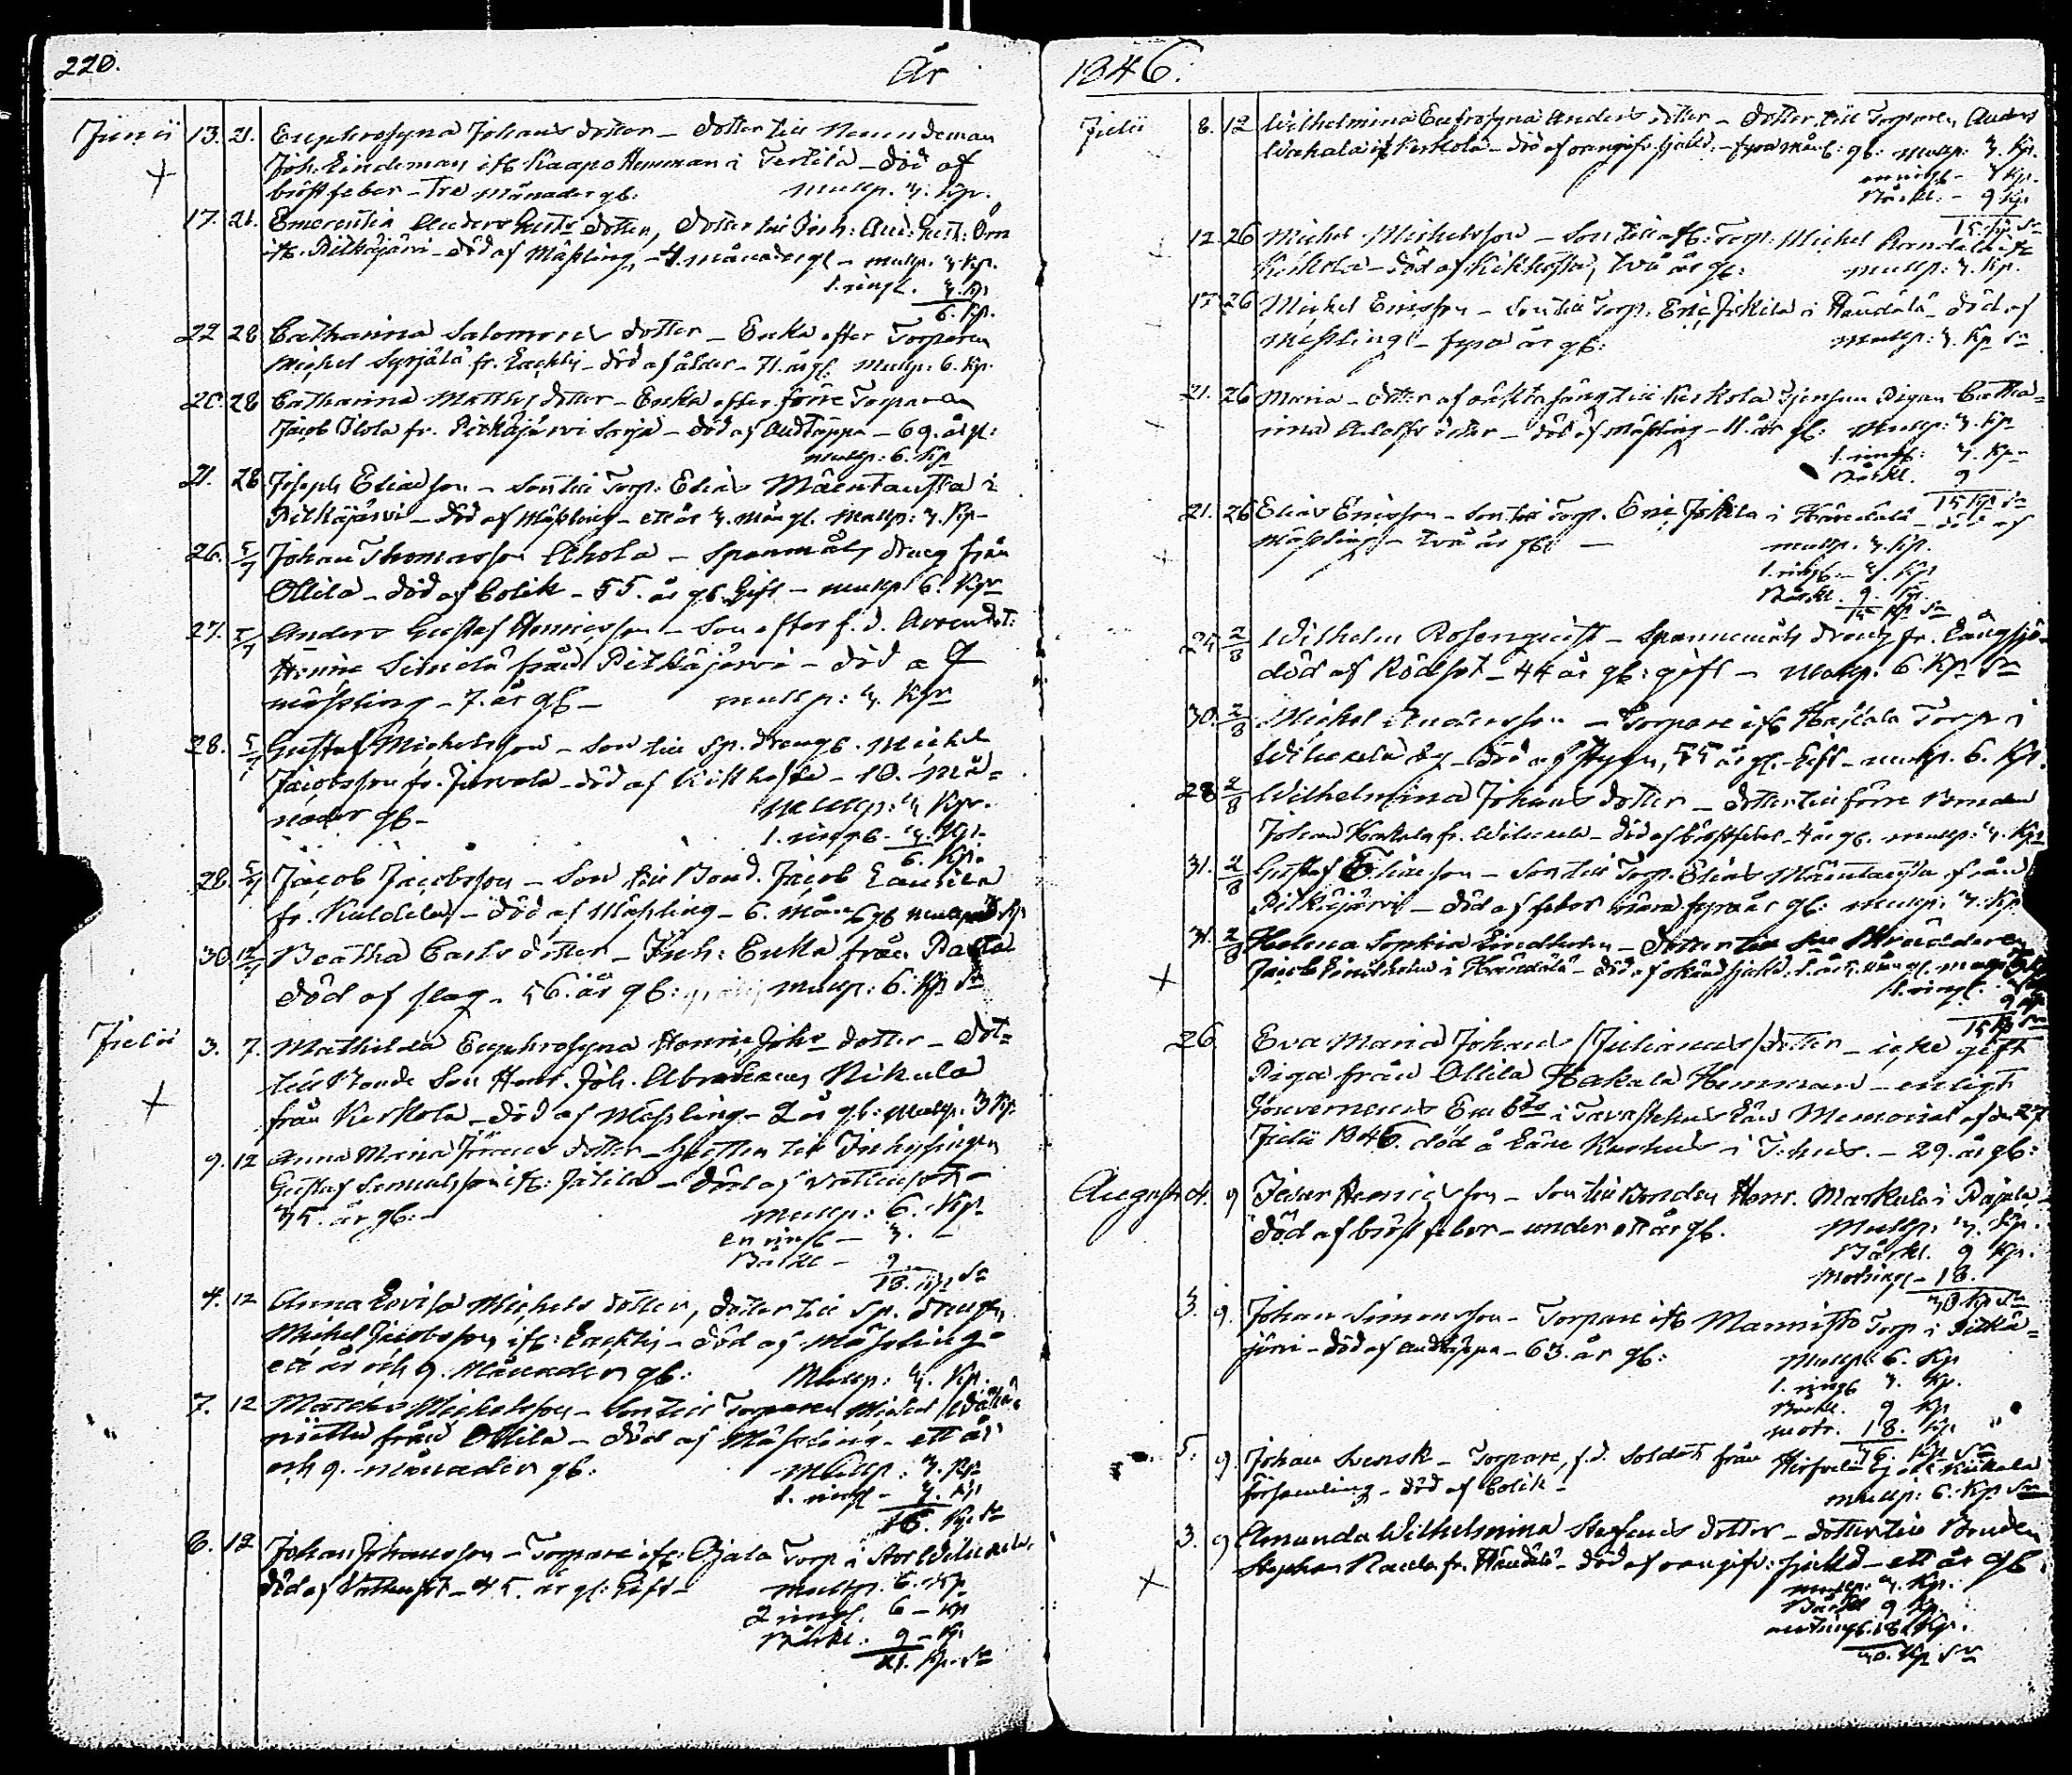 220. År
Junii 13. 21. Euphrosyna Johans dotter – dotter till Nämndeman
Joh. Lindeman ifr. Kaapo Hemman i Terttilä – död af
bröstfeber – Tre månader gl: mullp. 3. Kp.
17. 21. Emerentia Anders Gusts dotter, dotter till Inh: And: Gust: Örn
ifr. Pitkäjärvi – död af Mässling – 4. månader gl – mullp. 3. Kp.
1. ringl. 3. Kp
6. Kp.
22 28 Catharina Salomons dotter – Enka efter Torparen
Michel Syrjälä fr. Lachty – död af ålder – 71. år gl. Mullp: 6. Kp.
20. 28 Catharina Matths dotter – Enka efter förre Torparen
Jacob Ilola fr. Pitkäjärvi – död af Andtäppa – 69. år gl:
mullp: 6. Kp
21. 28 Joseph Eliasson – Son till Torp: Elias Mäentausta i
Pitkäjärvi – död af Mässling – ett år 3. mån gl. Mullp: 3. Kp –
26. 5/7 Johan Thomasson Ahola – Spanmåls dreng från
Ollila – död af Colik – 55. år gl. Gift – mullp 6. Kp
27. 5/7 Anders Gustaf Henricsson – Son efter f. d. Arrendat:
Henric Simola från Pitkäjärvi – död af
mässling – 7. år gl – mullp: 3. Kp
28. 5/7 Gustaf Michelsson – Son till Sp. drengs. Michel
Jacobsson fr. Jurvala – död af Kikhosta – 10. må=
nader gl – Mullp: 3 Kp.
1. ringl – 3. Kp.
6. Kp.
28. 5/7 Jacob Jacobsson – Son till Bond. Jacob Laurila
fr. Kuldela – död af Mässling – 6. mån gl mullp 3 Kp
30 12/7 Beatha Carls dotter – Inh: Enka från
död af slag – 56. år gl: mullp: 6. Kp Sr
Julii 3. 7. Mathilda Euphrosyna Henric Johs dotter – dot=
till Bonde Son Henr. Joh. Abrahams Nikula
från Kerkola – död af Mässling – 2 år gl: Mullp. 3 Kp.
9. 12 Anna Maria dotter – till Inhysingen
Gustaf Samuelsson ifr: Jätilä – död af Vattusot –
35. år gl: – mullp: 6. Kp
en ringl – 3. –
Bårkl – 9
18. Kp Sr
4. 12 Anna Lovisa Michels dotter, dotter till Sp. drengen
Michel Jacobsson ifr: Lachty – död af Mässling –
ett år och 9. Månader gl: Mullp: 3. Kp.
7. 12 Matths Michelsson – Son till Torparen Michel
niittu från Ollila – död af Mässling – ett år
och 9. månader gl: Mullp: 3. Kp
1. ringl – 3. Kp
6. Kp Sr
8. 12 Johan Johansson – Torpare ifr: Ojala Torp i Stor Wiluxela,
död af Vattusot – 45. år gl: Gift – mullp. 6. Kp
2 ringl. 6 – Kp
Bårkl. 9 – Kp
21. Kp. Sr
1846.
Julii 8. 12 Wilhelmina Eufrosyna Anders dotter – dotter till Torparen Anders
Wakala ifr Kerkola – död af oangifv. sjukd. – fyra mån. gl: mullp: 3. Kp.
en ringl – 3 Kp.
Bårkl. – 9 Kp
15. Kp Sr
12. 26 Michel Michelsson – Son till afl: Torp: Michel Randala ifr
Kerkola – död af Kikhosta, två år gl: mullp: 3. Kp.
17. 26 Michel Ericsson – Son till Torp. Eric Jokila i Händälä – död af
Mässling – fyra år gl: mullp: 3. Kp Sr
21. 26 Maria – dotter af oäkta säng till Kerkola Tjensten Pigan Catha=
rina Adolfs dotter – död af Mässling – 11. år gl: Mullp: 3. Kp
1. ringl: 3. Kp –
Bårkl. 9
15 Kp Sr
21. 26 Elias Ericsson – Son till Torp. Eric Jokila i Händälä – död af
Mässling – två år gl: – mullp. 3. Kp.
1. ringl – 3. Kp
Bårkl. 9. Kp.
15 Kp Sr
25 2/8 Wilhelm Rosenqvist – Spannmåls dreng fr. Långsjö –
död af Rödsot – 44 år gl: gift – Mullp. 6. Kp Sr
30. 2/8 Michel Andersson – Torpare ifr Torp i
Wiluxela by – död af Styng, 55 år gl. – Gift – mullp. 6. Kp.
28 2/8 Wilhelmina Johans dotter – dotter till förre Bonden
Johan fr. Wiluxela – död af bröstfeber – 4 år gl. mullp: 3. Kp
31. 2/8 Gustaf Eliasson – Son till Torp. Elias Mäentausta från
Pitkäjärvi – död af feber nära fyra år gl: mullp. 3. Kp
31. 2/8 Helena Sophia Lindholm – dotter till Skräddaren
Jacob Lindholm i Händälä – död af okänd sjukd. 1. år 5. mån gl. mullp
1. ringl.
9 Kp
15 Kp Sr
26. Eva Maria Johans /Julianas/ dotter – icke gift
Piga från Ollila Hakala Hemman – enligt
Gouverneurs Embts i Tavastehus Län Memorial af den 27
Julii 1846. död å Läne Kurhus i T:hus. – 29. år gl:
Augusti 4. 9 Isaac Henricsson – Son till Bonden Henr. Markula i Rajala –
död af bröst feber – under ett år gl. Mullp: 3. Kp.
Bårkl. 9 Kp.
Motringl – 18.
30 Kp Sr
3. 9. Johan Simonsson – Torpare ifr Mannisto Torp i Pitkä=
järvi – död af andtäppa – 63. år gl: Mullp: 6. Kp
1. ringl 3. Kp.
Bårkl. 9 Kp
motr. 18. Kp.
36. Kp Sr
5. 9. Johan Svensk – Torpare, f. d. Soldat från Hirsjärvi by i Kiikala
församling – död af Colik – mullp: 6. Kp Sr
3. 9 Amanda Wilhelmina Stefans dotter – dotter till Bonden
Stephan fr. Händälä – död af oangifv: sjukd – ett år gl.
mullp: 3. Kp.
Bårkl 9 Kp.
motringl. 18 Kp.
30. Kp Sr